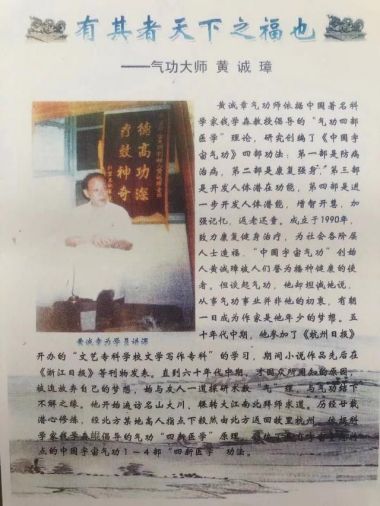 有其者天下之福也
——气功大师 黄诚璋
黄诚章气功师依据中国著名科
学家钱学森教授倡导的“气功四部
医学”理论，研究创编了《中国宇
宙气功》四部功法：第一部是防病
治病，第二部是康复强身，第三部
是开发人体潜在功能，第四部是进
一步开发人体潜能，增智开慧，加
强记忆，返老还童。成立于1990年，
致力康复健身治疗，为社会各阶层
人士造福，“中国宇宙气功”创始
人黄诚璋被人们誉为播种健康的使
者，但谈起气功，他却坦诚地说，
从事气功事业并非他的初衷，有朝
一日成为作家是他年少的梦想。五
十年代中期，他参加了《杭州日报》
德高功深
疗效神奇
黄诚章为学员讲课
开办的“文艺专科学校文学写作专科”的学习，期间小说作品先后在
《浙江日报》等刊物发表。直到六十年代中期，才因众所周知的原因，
被迫放弃自己的梦想，始与友人一道探研术数、气、理，与气功结下
不解之缘。他开始遍访名山大川，辗转大江南北拜师求道。历经廿载
潜心修炼，经北方某地高人指点下毅然由北方返回故里杭州，依据科
学家钱学森倡导的气功“四新医学”原理，
点的中国宇宙气功1－4部“四新医学”功法。